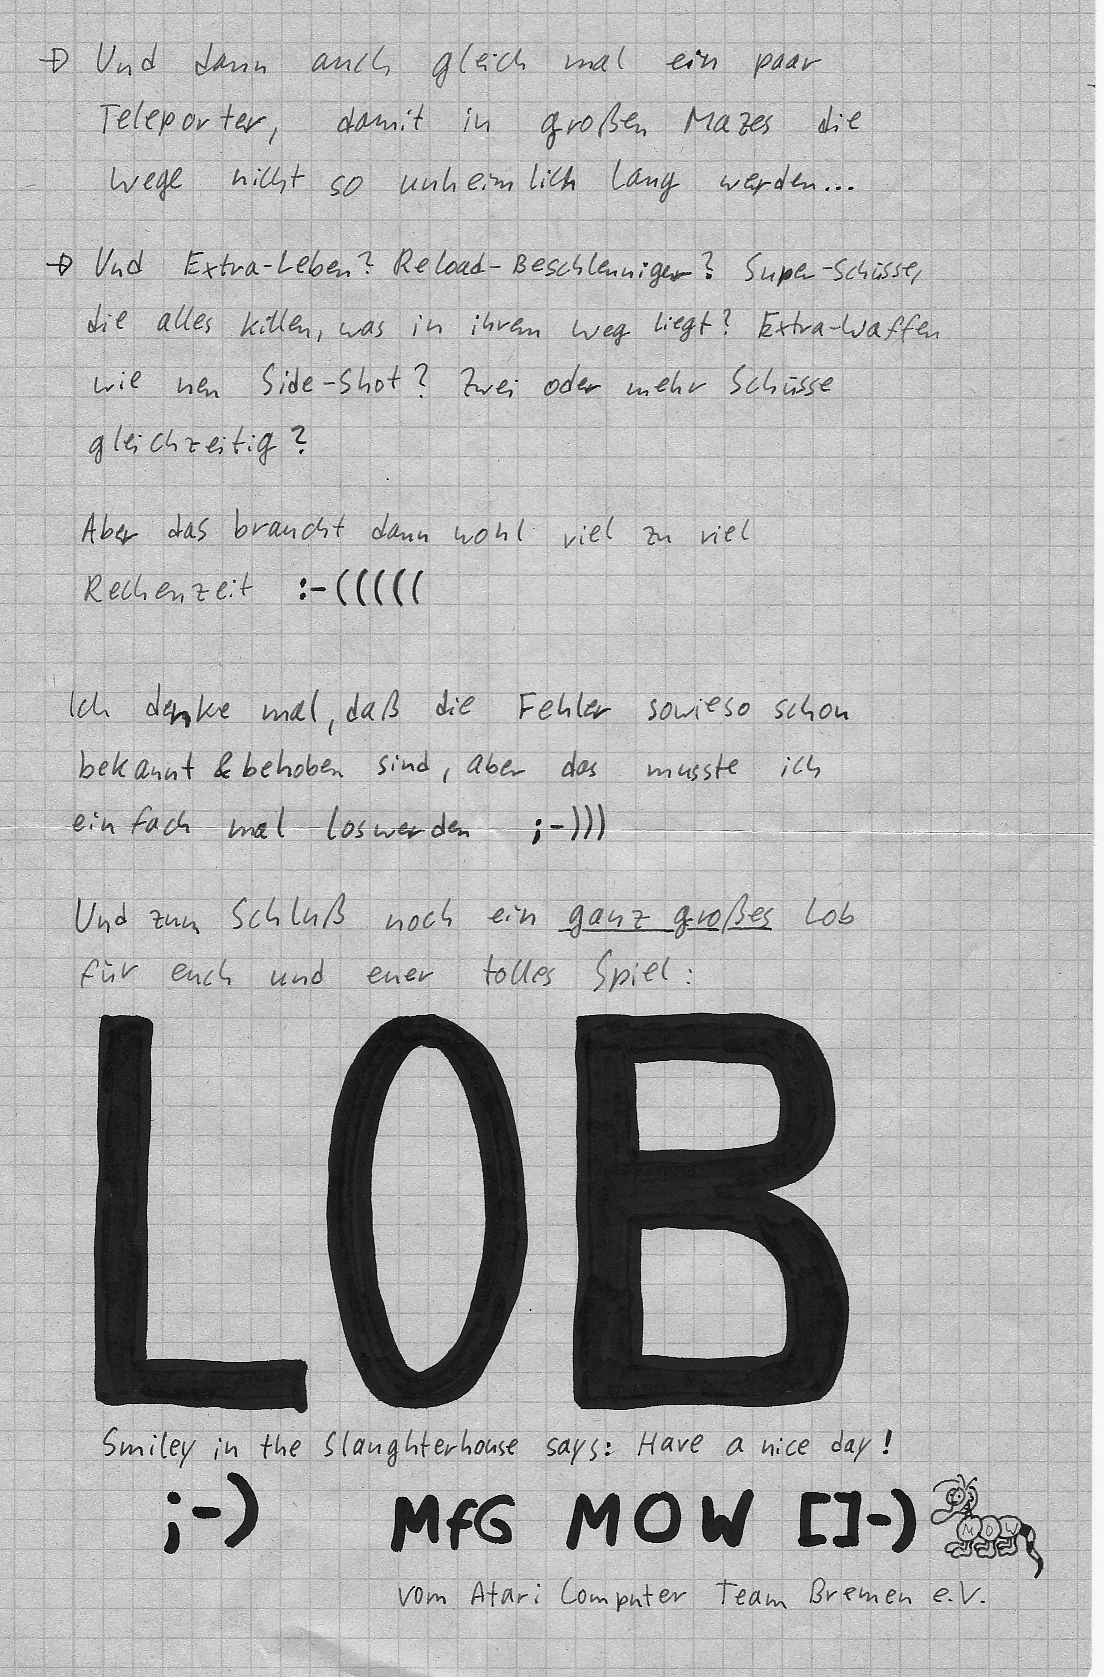 → Und dann auch gleich mal ein paar
Teleporter, damit in großen Mazes die
Wege nicht so unheimlich lang werden...
→ Und Extra-Leben? Reload-Beschleuniger? Super-Schüsse,
die alles killen, was in ihrem Weg liegt? Extra-Waffen
wie nen Side-Shot? Zwei oder mehr Schüsse
gleichzeitig?
Aber das braucht dann wohl viel zu viel
Rechenzeit :-(((((
Ich denke mal, daß die Fehler sowieso schon
bekannt & behoben sind, aber das musste ich
einfach mal loswerden ;-)))
Und zum Schluß noch ein ganz großes Lob
für euch und euer tolles Spiel:
LOB
Smiley in the Slaughterhouse says: Have a nice day!
;-) MfG MOW []-) MOW
vom Atari Computer Team Bremen e.V.